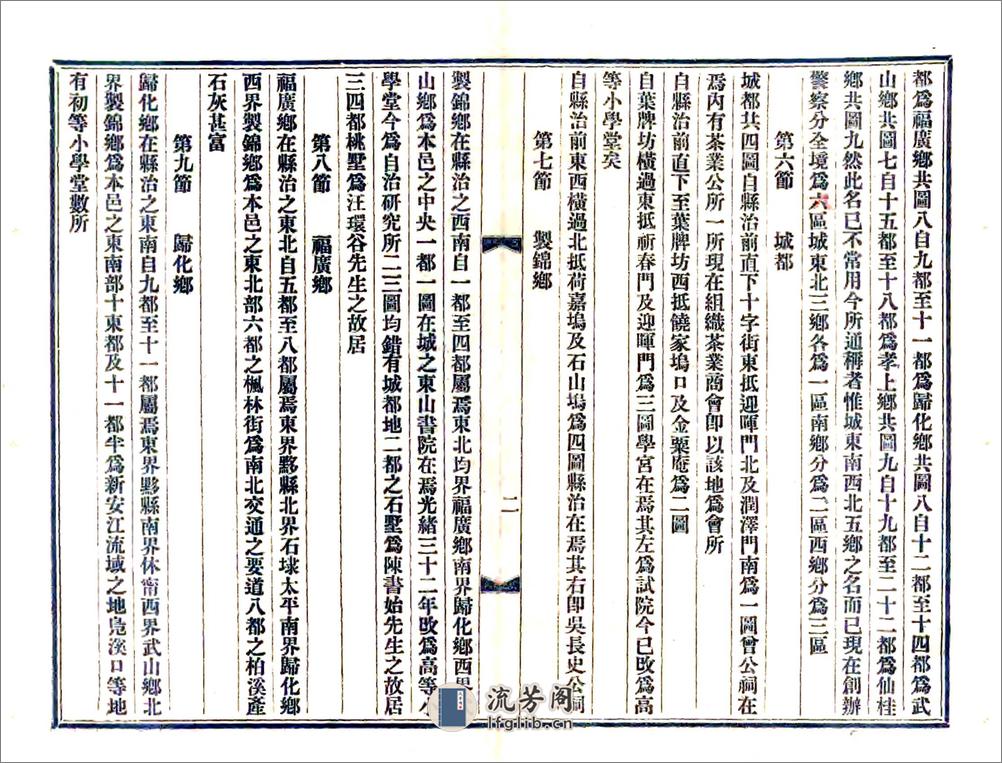 都爲福廣鄕共圖八自九都至十一都爲歸化鄕共圖八自十二都至十四都爲武
山鄕共圖七自十五都至十八都爲孝上鄕共圖九自十九都至二十二都爲仙桂
鄕共圖九然此名已不常用今所通稱者惟城東南西北五鄕之名而已現在創辦
警察分全境爲六區城東北三鄕各爲一區南鄕分爲二區西鄕分爲三區
第六節 城都
城都共四圖自縣治前直下十字街東抵迎暉門北及潤澤門南爲一圖曾公祠在
焉內有茶業公所一所現在組織茶業商會卽以該地爲會所
自縣治前直下至葉牌坊西抵饒家塢口及金粟庵爲二圖
自葉牌坊橫過東抵祈春門及迎暉門爲三圖學宮在焉其左爲試院今已改爲高
等小學堂矣
自縣治前東西橫過北抵荷嘉塢及石山塢爲四圖縣治在焉其右卽吳長史公祠
第七節 製錦鄕
二
製錦鄕在縣治之西南自一都至四都屬焉東北均界福廣鄕南界歸化鄕西界
山鄕爲本邑之中央一都一圖在城之東山書院在焉光緖三十二年改爲高等小
學堂今爲自治硏究所二三圖均錯有城都地二都之石墅爲陳書始先生之故居
三四都桃墅爲汪環谷先生之故居
第八節 福廣鄕
福廣鄕在縣治之東北自五都至八都屬焉東界黟縣北界石埭太平南界歸化鄕
西界製錦鄕爲本邑之東北部六都之楓林街爲南北交通之要道八都之柏溪產
石灰甚富
第九節 歸化鄕
歸化鄕在縣治之東南自九都至十一都屬焉東界黟縣南界休甯西界武山鄕北
界製錦鄕爲本邑之東南部十東都及十一都半爲新安江流域之地凫溪口等地
有初等小學堂數所
流芳阁
lfglib.cn